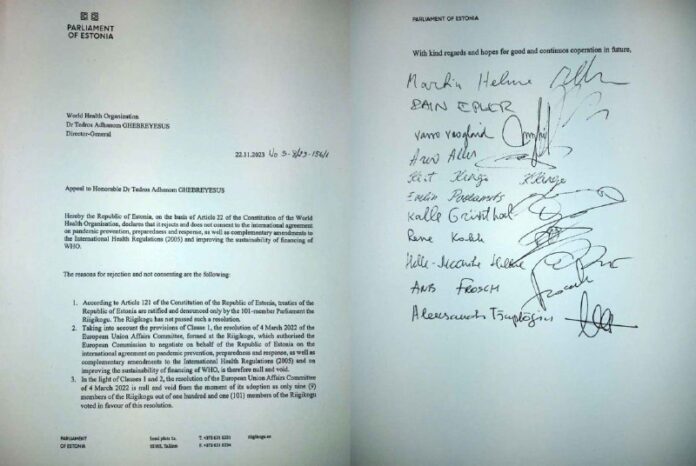 PARLIAMENT
OF ESTONIA
World Health Organization
Dr Tedros Adhanom GHEBREYESUS
Director-General
22.11.2023 No 3-8/23-156/1
Appeal to Honorable Dr Tedros Adhanom GHEBREYESUS
Hereby the Republic of Estonia, on the basis of Article 22 of the Constitution of the World
Health Organisation, declares that it rejects and does not consent to the international agreement
on pandemic prevention, preparedness and response, as well as complementary amendments to
the International Health Regulations (2005) and improving the sustainability of financing of
WHO.
The reasons for rejection and not consenting are the following:
1. According to Article 121 of the Constitution of the Republic of Estonia, treaties of the
Republic of Estonia are ratified and denounced only by the 101-member Parliament the
Riigikogu. The Riigikogu has not passed such a resolution.
2. Taking into account the provisions of Clause 1, the resolution of 4 March 2022 of the
European Union Affairs Committee, formed at the Riigikogu, which authorised the
European Commission to negotiate on behalf of the Republic of Estonia on the
international agreement on pandemic prevention, preparedness and response, as well as
complementary amendments to the International Health Regulations (2005) and on
improving the sustainability of financing of WHO, is therefore null and void.
3. In the light of Clauses 1 and 2, the resolution of the European Union Affairs Committee
of 4 March 2022 is null and void from the moment of its adoption as only nine (9)
members of the Riigikogu out of one hundred and one (101) members of the Riigikogu
voted in favour of this resolution.
PARLIAMENT
OF ESTONIA
Lossi plats 1a
15165, Tallinn
T. +372 631 6331
F. +372 631 6334
riigikogu.ee
PARLIAMENT OF ESTONIA
With kind regards and hopes for good and continuos coperation in future,
Martin Helme
RAIN EPLER
Varro Vooglaid
Arvo Aller
Kert Kingo
Evelin Poolamets
Kalle Grünthal
Rene Kokk
Helle-Moonika Helme
ANTS FROSCH
Aleksandr Tšaplõgin